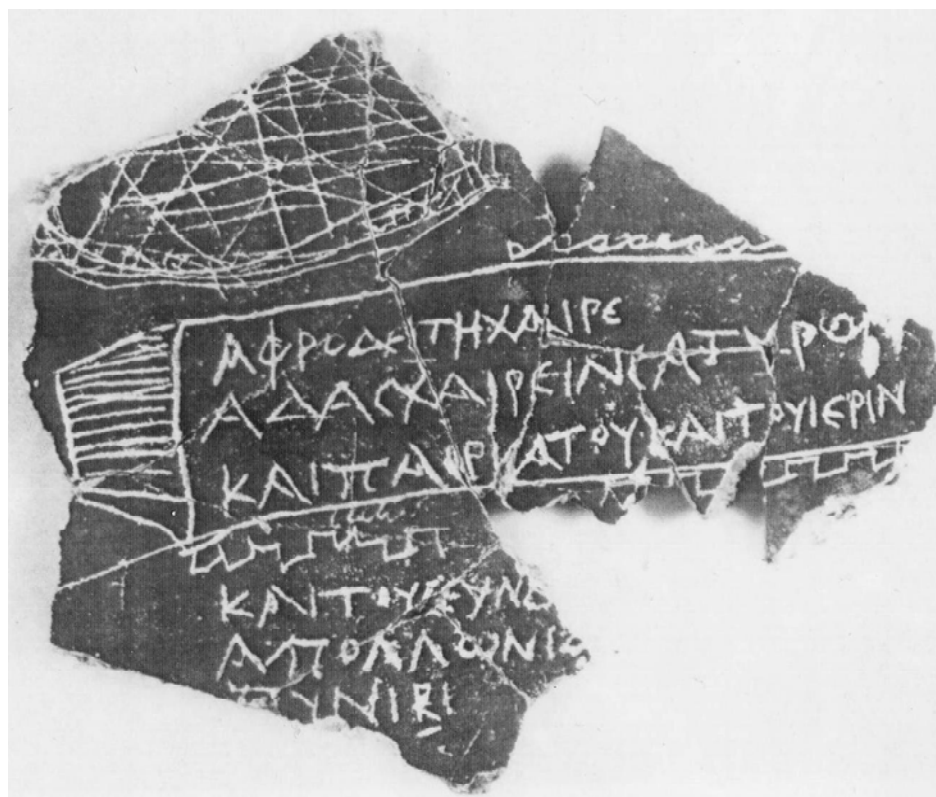 ΑΦΡΟΔΕΙΤΗΧΑΙΡΕ
ΑΔΑϹΧΑΙΡΕΙΝϹΑΤΥΡΟϹ
ΚΑΙΠΑΙΡΙΑΤΟΥΚΑΙΤΟΥΙΕΡΙΝ
ΚΑΙΤΟΥϹΕΥΝΟ
ΑΠΟΛΛΩΝΙΩ